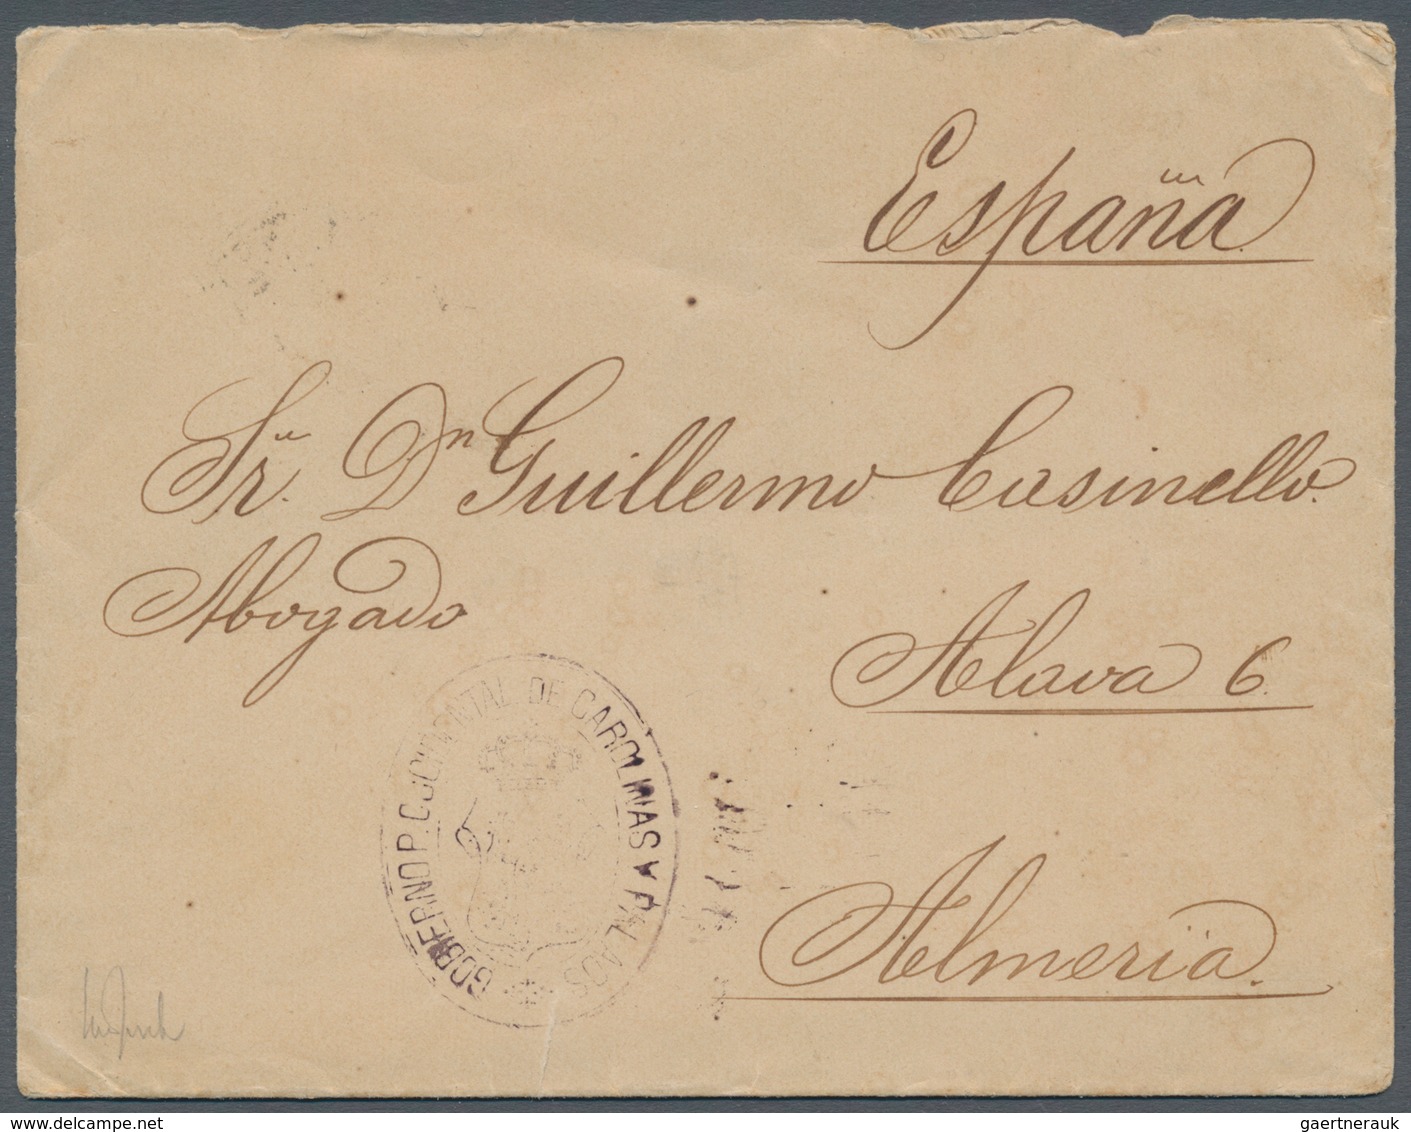 España
Sr. Dn Guillermo Casinello.
Abogado
Alava 6.
Almería.
GOBIERNO P. O OCCIDENTAL DE CAROLINAS Y PALAOS
gaertnerauk